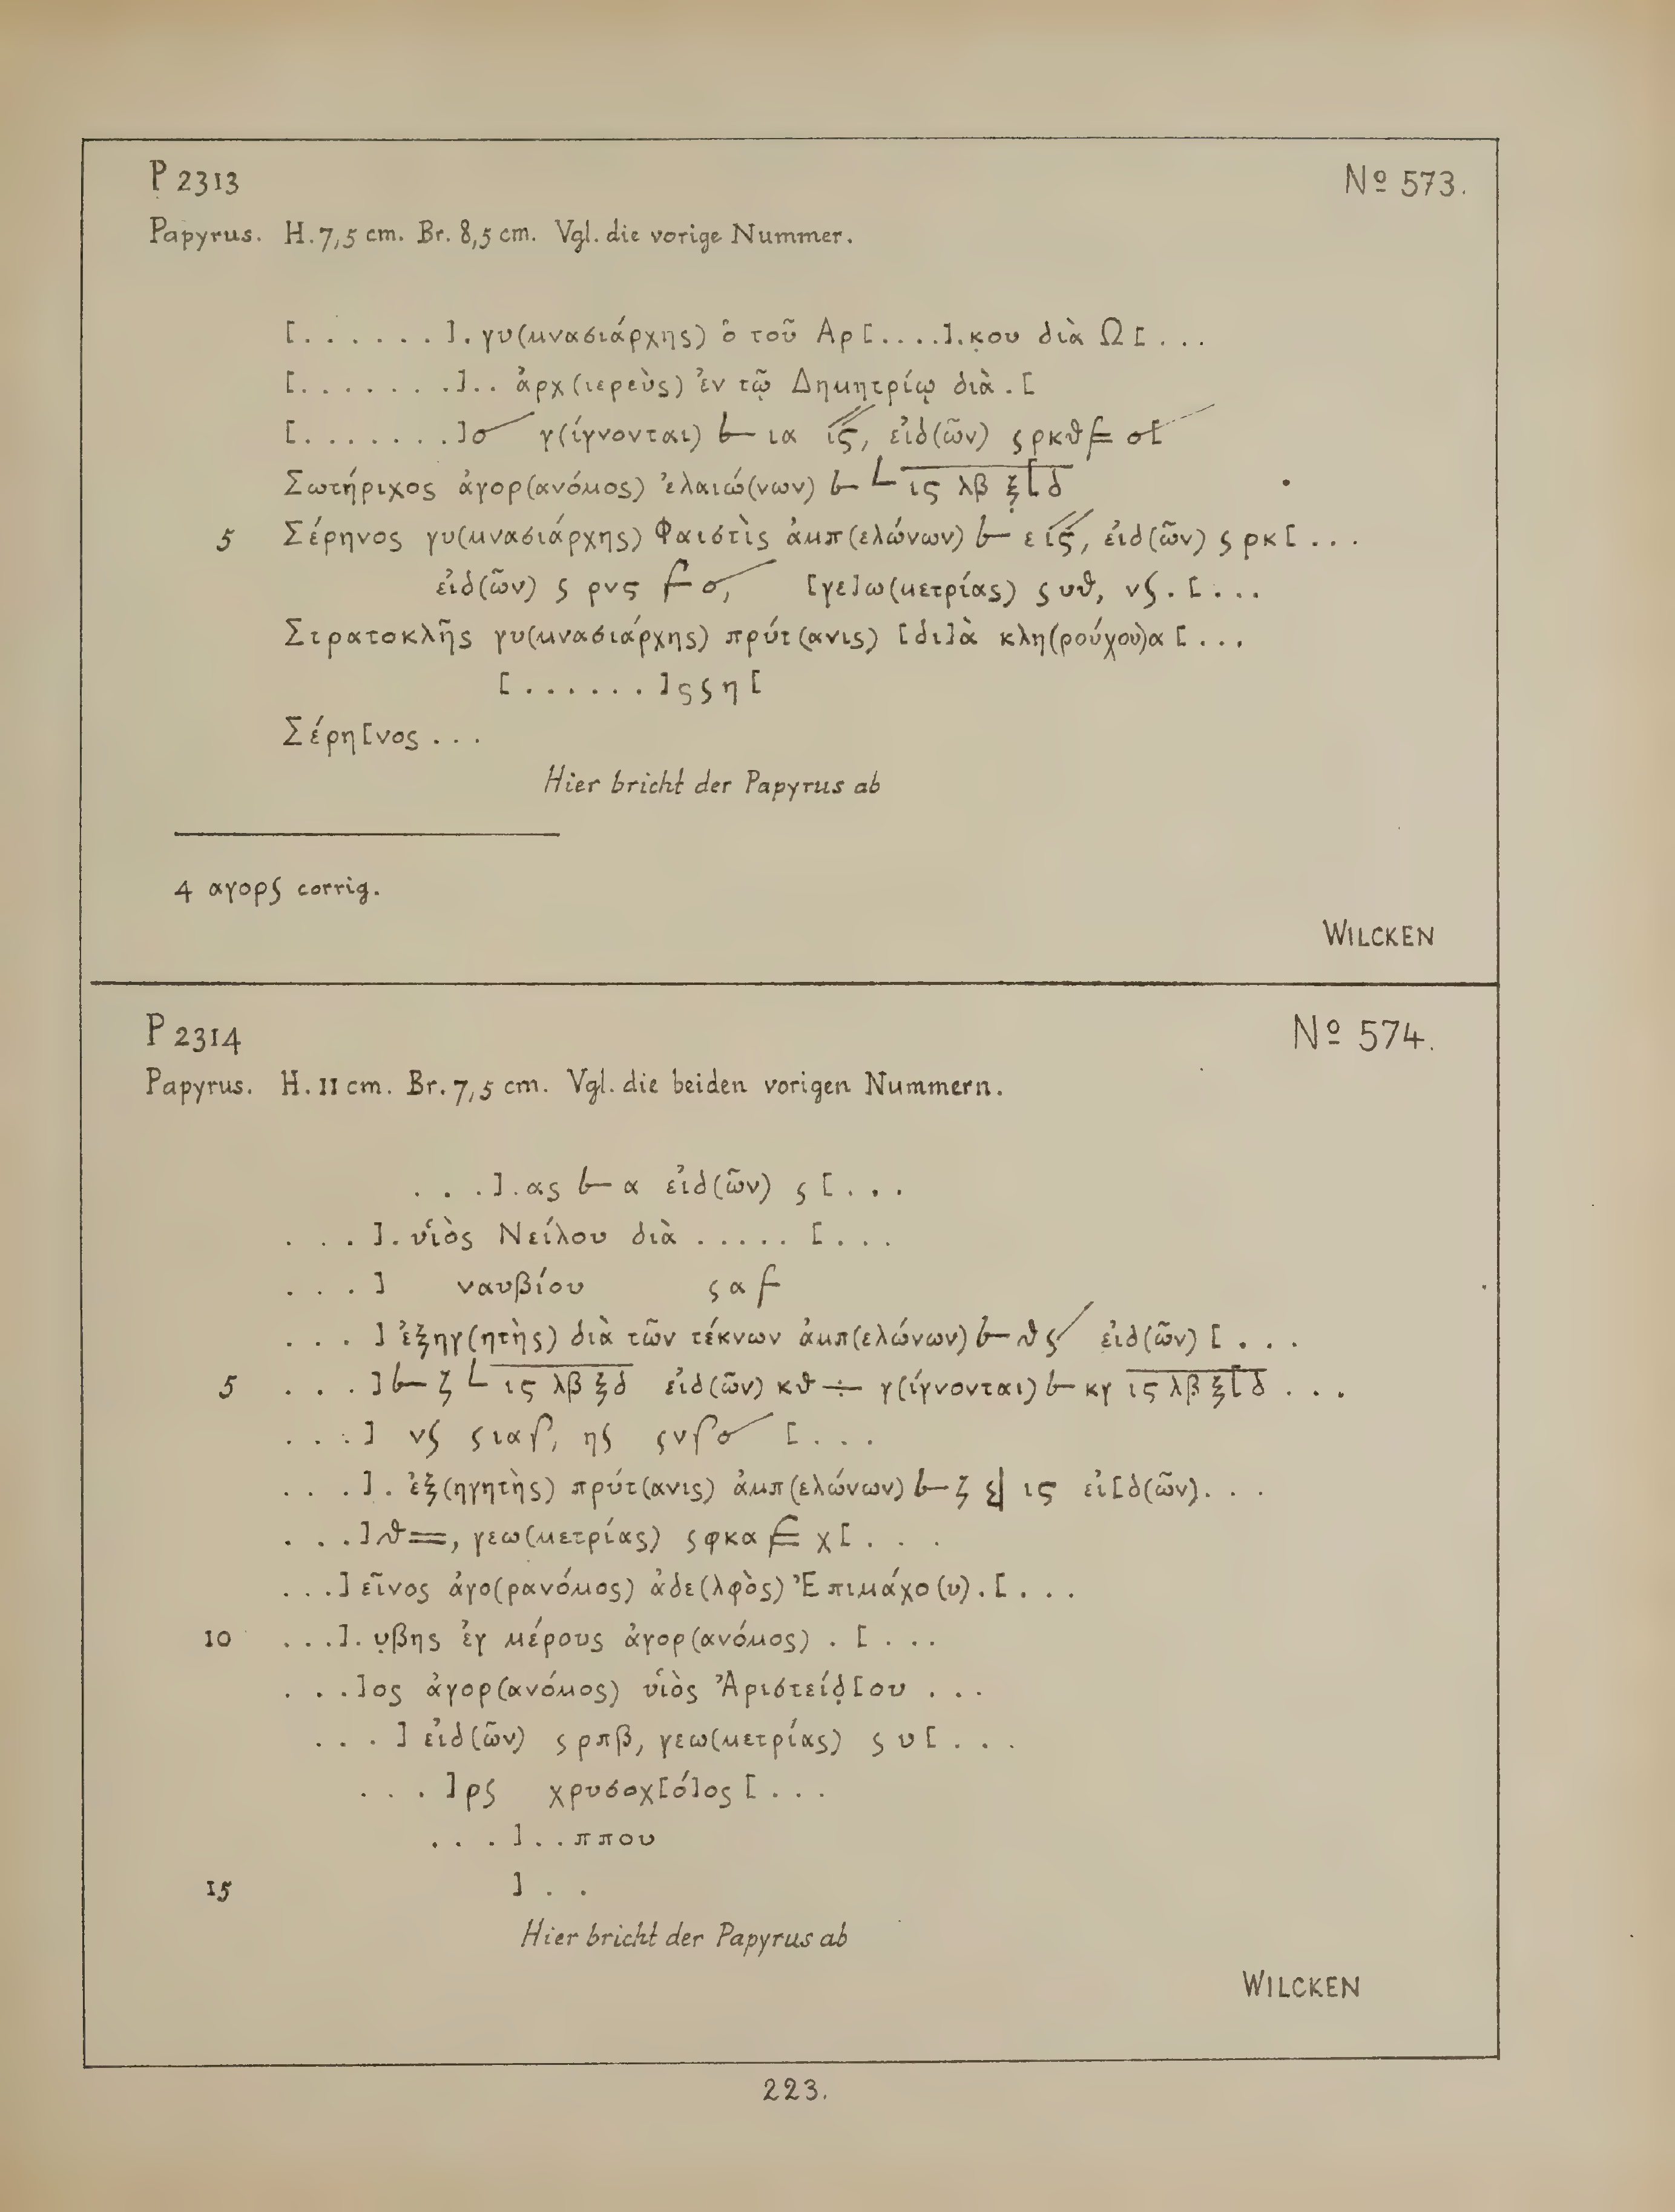 P 2313
Nº 573.
Papyrus. H. 7,5 cm. Br. 8,5 cm. Vgl. die vorige Nummer.
[.......]. γυ(μνασιάρχης) ὁ τοῦ Αρ[....].κου διὰ Ω[...
[........].. ἀρχ(ιερεὺς) ἐν τῷ Δημητρίῳ διὰ .[
[.......]σ γ(ίγνονται) ια ις, εἰδ(ῶν) ς ρκθ σ[
Σωτήριχος ἀγορ(ανόμος) ἐλαιώ(νων) ις λβ ξ[δ
5 Σέρηνος γυ(μνασιάρχης) Φαιστὶς ἀμπ(ελώνων) ε ις, εἰδ(ῶν) ς ρκ[...
εἰδ(ῶν) ς ρνς σ, [γε]ω(μετρίας) ς υθ, νϛ.[...
Στρατοκλῆς γυ(μνασιάρχης) πρύτ(ανις) [δι]ὰ κλη(ρούχου)α[...
[......]ςϛη[
Σέρη[νος ...
Hier bricht der Papyrus ab
4 αγορϛ corrig.
WILCKEN
P 2314
Nº 574.
Papyrus. H. 11 cm. Br. 7,5 cm. Vgl. die beiden vorigen Nummern.
...].ας α εἰδ(ῶν) ς[...
...].υἱὸς Νείλου διὰ .....[...
...] ναυβίου ς α
...] ἐξηγ(ητὴς) διὰ τῶν τέκνων ἀμπ(ελώνων) θς εἰδ(ῶν) [...
5 ...] ζ ις λβ ξδ εἰδ(ῶν) κθ γ(ίγνονται) κγ ις λβ ξ[δ ...
...] νϛ ςια, ηϛ ςν [...
...]. ἐξ(ηγητὴς) πρύτ(ανις) ἀμπ(ελώνων) ζ ις εἰ[δ(ῶν)...
...]θ=, γεω(μετρίας) ςφκα χ[...
...]εῖνος ἀγο(ρανόμος) ἀδε(λφὸς) Ἐπιμάχο(υ).[...
10 ...].υβης ἐγ μέρους ἀγορ(ανόμος) .[...
...]ος ἀγορ(ανόμος) υἱὸς Ἀριστείδ[ου ...
...] εἰδ(ῶν) ς ρπβ, γεω(μετρίας) ς υ[...
...]ρϛ χρυσοχ[ό]ος[...
...]..ππου
15 ]..
Hier bricht der Papyrus ab
WILCKEN
223.